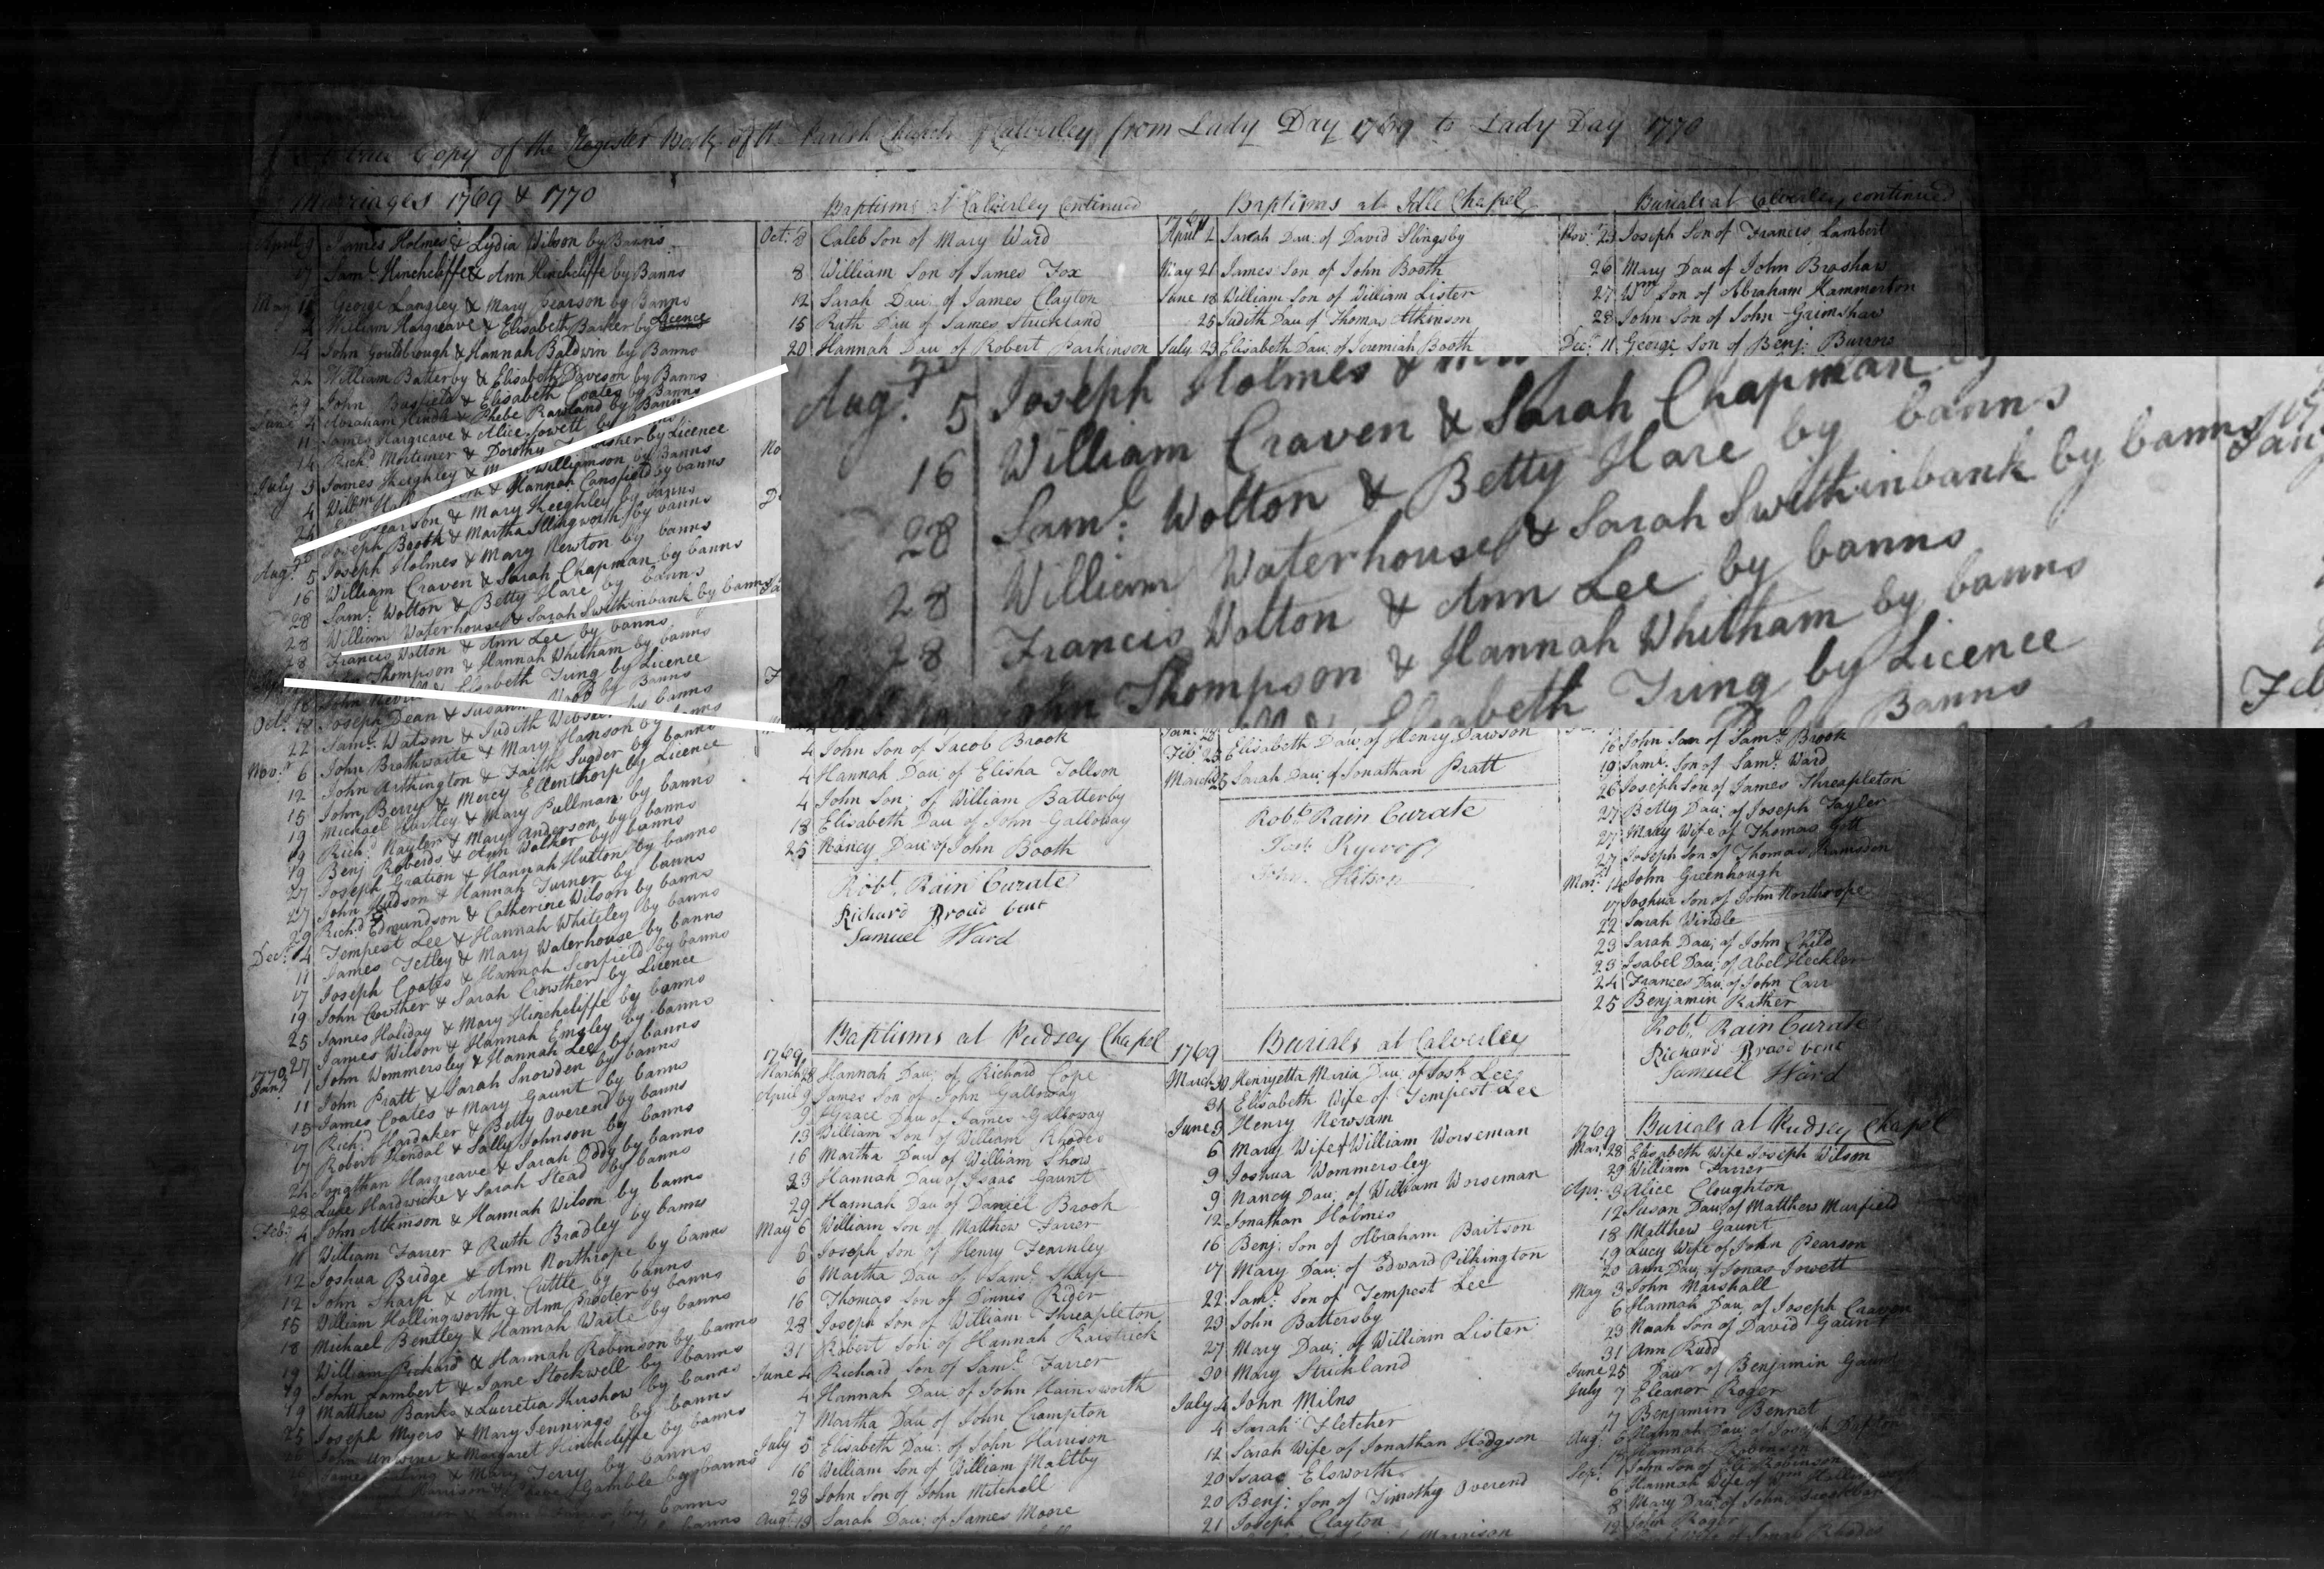 true Copy of the Register Book of the Parish Church of Calverley from Lady Day 1769 to Lady Day 1770
Marriages 1769 & 1770
April 9 James Holmes & Lydia Wilson by Banns
17 Sam.l Hinchcliffe & Ann Hinchcliffe by Banns
May George Langley & Mary Pearson by Banns
4 William Hargreave & Elisabeth Barker by Licence
14 John Gouldbrough & Hannah Baldwin by Banns
22 William Batterby & Elisabeth Daveson by Banns
29 John & Elisabeth Coates by Banns
June 4 Abraham Hindle & Phebe Rawland by Banns
11 James Hargreave & Alice Jowett by
14 Rich.d Mortimer & Dorothy by Licence
July 3 James Keighley & Williamson by Banns
4 & Hannah Cansfield by banns
& Mary Keighley by banns
Joseph Booth & Martha Illingworth by banns
Aug.t 5 Joseph Holmes & Mary Newton by banns
16 William Craven & Sarah Chapman by banns
28 Sam.l Wolton & Betty Hare by banns
28 William Waterhouse & Sarah Swithinbank by banns
28 Francis Wolton & Ann Lee by banns
Thompson & Hannah Whitham by banns
18 John & Elisabeth Tung by Licence
Oct.r 18 Joseph Dean & Susanna by Banns
22 Sam.l Watson & Judith Webster by banns
Nov.r 6 John Brathwaite & Mary Hanson by banns
12 John Arthington & Faith Sugder by banns
15 John Berry & Mercy Ellenthorp by Licence
19 Michael Hartley & Mary Pullman by banns
19 Rich.d Nayler & Mary Anderson by banns
19 Benj Roberds & Ann Walker by banns
27 Joseph Gration & Hannah Hutton by banns
27 John Hudson & Hannah Turner by banns
29 Rich.d Edmundson & Catherine Wilson by banns
Dec.r 4 Tempest Lee & Hannah Whiteley by banns
11 James Tetley & Mary Waterhouse by banns
17 Joseph Coates & Hannah Scorfield by banns
19 John Crowther & Sarah Crowther by Licence
25 James Holiday & Mary Hinchcliffe by banns
27 James Wilson & Hannah Emsley by banns
1770 Jan.y 1 John Wommersley & Hannah Lee by banns
11 John Pratt & Sarah Snowden by banns
15 James Coates & Mary Gaunt by banns
17 Rich.d Hardaker & Betty Overend by banns
17 Robert Kendal & Sally Johnson by banns
24 Jonathan Hargreave & Sarah Oddy by banns
28 Luke Hardwicke & Sarah Stead by banns
Feb: 4 John Atkinson & Hannah Wilson by banns
11 William Farrer & Ruth Bradley by banns
12 Joshua Bridge & Ann Northrope by banns
12 John Sharp & Ann Cuttle by banns
15 William Hollingworth & Ann Procter by banns
18 Michael Bentley & Hannah Waite by banns
19 William & Hannah Robinson by banns
19 John Lambert & Jane Stockwell by banns
19 Matthew Banks & Lucretia Kershow by banns
25 Joseph Myers & Mary Jennings by banns
John Unwine & Margaret Hinchcliffe by banns
James & Mary Terry by banns
Harrison & Gamble by banns
by banns
banns
Baptisms at Calverley Continued
Oct.r 8 Caleb Son of Mary Ward
8 William Son of James Fox
12 Sarah Dau: of James Clayton
15 Ruth Dau of James Strickland
20 Hannah Dau of Robert Parkinson
4 John Son of Jacob Brook
4 Hannah Dau: of Elisha Tollson
4 John Son: of William Batterby
18 Elisabeth Dau of John Galloway
25 Nancy Dau: of John Booth
Rob.t Rain Curate
Richard Broad bent
Samuel Ward
Baptisms at Pudsey Chapel
1769
March 28 Hannah Dau: of Richard Cope
April 9 James Son of John Galloway
9 Grace Dau of James Galloway
13 William Son of William Rhodes
16 Martha Dau of William Show
23 Hannah Dau of Isaac Gaunt
29 Hannah Dau of Daniel Brook
May 6 William Son of Matthew Farrer
6 Joseph Son of Henry Fearnley
6 Martha Dau of Sam.l Sharp
16 Thomas Son of Dinnis Rider
28 Joseph Son of William Threapleton
31 Robert Son of Hannah Raistrick
June 4 Richard Son of Sam.l Farrer
4 Hannah Dau of John Hainsworth
7 Martha Dau of John Crampton
July 5 Elisabeth Dau: of John Harrison
16 William Son of William Maltby
28 John Son of John Mitchell
Aug.t 13 Sarah Dau: of James Moore
Baptisms at Idle Chapel
1769
April 2 Sarah Dau: of David Slingsby
May 21 James Son of John Booth
June 18 William Son of William Lister
25 Judith Dau of Thomas Atkinson
July 23 Elisabeth Dau: of Jeremiah Booth
Feb: 25 Elisabeth Dau: of Henry Dawson
March 25 Sarah Dau: of Jonathan Pratt
Rob.t Rain Curate
John Hitson
Burials at Calverley
1769
March 30 Henryetta Maria Dau: of Josh Lee
31 Elisabeth Wife of Tempest Lee
June 3 Henry Newsam
6 Mary Wife of William Worseman
9 Joshua Wommersley
9 Nancy Dau: of William Worseman
12 Jonathan Holmes
16 Benj: Son of Abraham Baitson
17 Mary Dau: of Edward Pilkington
22 Sam.l Son of Tempest Lee
23 John Battersby
27 Mary Dau: of William Lister
30 Mary Strickland
July 4 John Milns
4 Sarah Fletcher
12 Sarah Wife of Jonathan Hodgson
20 Isaac Elsworth
20 Benj: Son of Timothy Overend
21 Joseph Clayton
Morrison
Burials at Calverley continued
Nov.r 23 Joseph Son of Francis Lambert
26 Mary Dau of John Brashaw
27 W.m Son of Abraham Hammerton
28 John Son of John Grimshaw
Dec.r 11 George Son of Benj: Burrns
10 John Son of Sam.l Brook
19 Sam.l Son of Sam.l Ward
26 Joseph Son of James Threapleton
27 Betty Dau: of Joseph Tayler
27 Mary Wife of Thomas Gott
27 Joseph Son of Thomas Ramsden
Mar: 14 John Greenhough
17 Joshua Son of John Northrope
22 Sarah Windle
23 Sarah Dau: of John Child
23 Isabel Dau: of Abel Heckler
24 Frances Dau: of John Carr
25 Benjamin Rather
Rob.t Rain Curate
Richard Broad bent
Samuel Ward
Burials at Pudsey Chapel
1769
Mar: 28 Elisabeth Wife Joseph Wilson
29 William Farrer
Apr: 3 Alice Cloughton
12 Susan Dau: of Matthew Murfield
18 Matthew Gaunt
19 Lucy Wife of John Pearson
20 Ann Dau: of Jonas Jowett
May 3 John Marshall
6 Hannah Dau of Joseph Craven
23 Noah Son of David Gaunt
31 Ann Rudd
June 25 Dau.r of Benjamin Gaunt
July 7 Eleanor Roger
7 Benjamin Bennet
Aug: 6 Hannah Dau: of Joseph
Hannah Robinson
Sep.t 1 John Son of Robinson
6 Hannah Wife of W.m
8 Mary Dau: of John
12 John Roger
of Jonas Rhodes
Aug.t 5 Joseph Holmes &
16 William Craven & Sarah Chapman
28 Sam.l Wolton & Betty Hare by banns
28 William Waterhouse & Sarah Swithinbank by banns
28 Francis Wolton & Ann Lee by banns
John Thompson & Hannah Whitham by banns
Elisabeth Tung by Licence
Banns